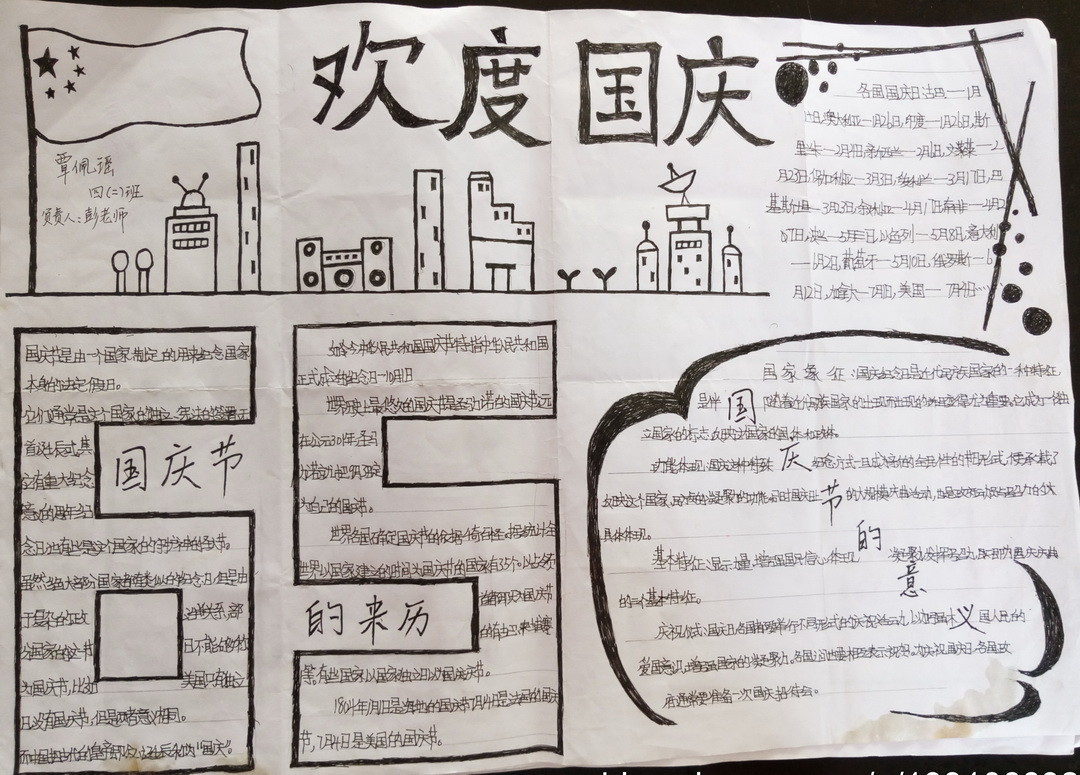 欢度国庆
覃佩瑶
四(二)班
负责人:彭老师
各国国庆日:古巴—1月
1日,澳大利亚—1月26日,印度—1月26日,斯
里兰卡—2月4日,新西兰—2月6日,文莱—2
月23日,保加利亚—3月3日,爱尔兰—3月17日,巴
基斯坦—3月23日,
—5月8日,意大利
—6月2日,葡萄牙—6月10日,俄罗斯—6
月12日,加拿大—7月1日,美国—7月4日……
国庆节是由一个国家制定的用来纪念国家
本身的法定假日。
它们通常是这个国家的独立、宪法的签署、
国庆节
念日;也有些是这个国家的守护神的圣节。
虽然绝大部分国家都有类似的纪念日,但是由
于复杂的政
治关系,部
分国家的这节
日不能够称
为国庆节,比如
美国只有独立
日,没有国庆节,但是两者意义相同。
而中国把古代的皇帝即位、诞辰称为“国庆”。
如今,中华人民共和国国庆节特指中华人民共和国
正式成立的纪念日—10月1日
世界历史上最悠久的国庆节是圣马力诺的国庆节,远
在公元301年,圣马
力诺就把9月3日定
为自己的国庆节。
世界各国确定国庆节的依据千奇百怪。据统计,全
世界以国家建立的时间为国庆节的国家有35个。以占领
的来历
等。有些国家以国家独立日为国庆节。
1804年1月1日是海地的国庆节,7月14日是法国的国庆
节,7月4日是美国的国庆节。
国庆节的意义
国家象征:国庆纪念日是近代民族国家的一种特征,
是伴随着近代民族国家的出现而出现的,并且变得尤为重要。它成为一个独
立国家的标志,反映这个国家的国体和政体。
功能体现:国庆这种特殊纪念方式一旦成为新的、全民性的节日形式,便承载了
反映这个国家、民族的凝聚力的功能。同时国庆日的大规模庆典活动,也是政府动员与号召力的
具体体现。
基本特征:显示力量、增强国民信心,体现凝聚力,发挥号召力,即为国庆庆典
的三个基本特征。
庆祝仪式:国庆日,各国都要举行不同形式的庆祝活动,以加强本国人民的
爱国意识,增强国家的凝聚力。各国之间也要相互表示祝贺。
府通常要准备一次国庆招待会。